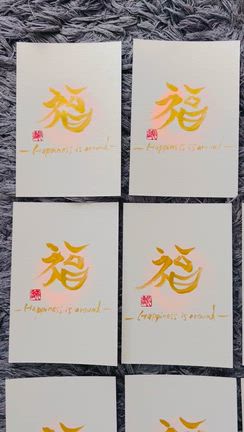 福
- Happiness is around -
福
- Happiness is around -
福
- Happiness is around -
福
- Happiness is around -